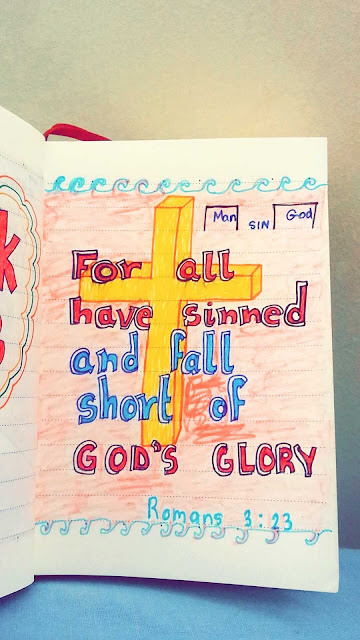 Man SIN God
For all
have sinned
and fall
short of
GOD'S GLORY
Romans 3:23